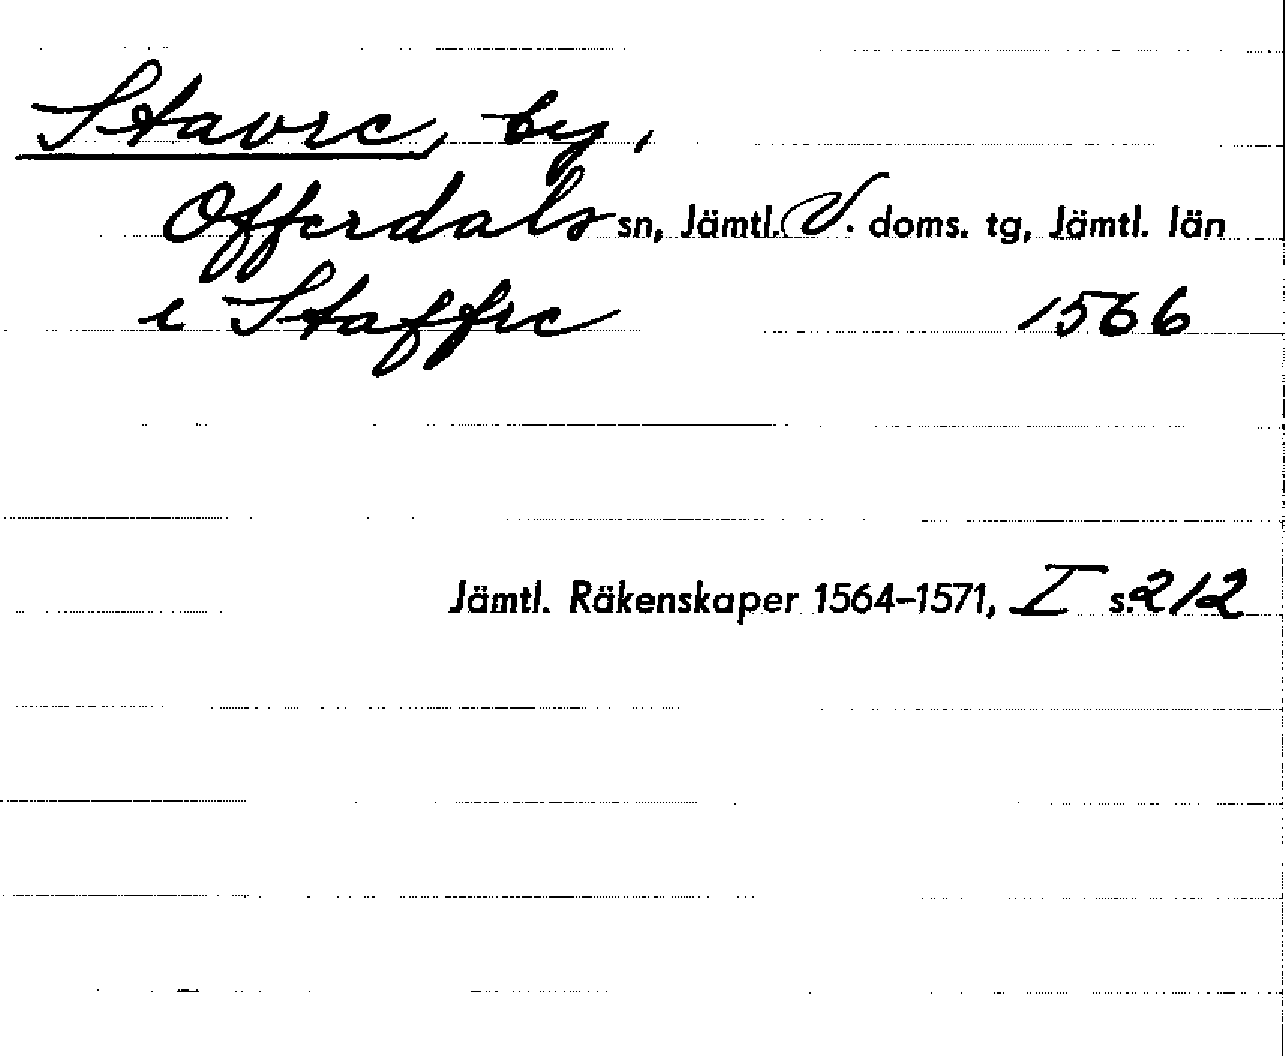 Stavre, by,
Offerdals sn, Jämtl. V. doms. tg, Jämtl. län
i Staffre 1566
Jämtl. Räkenskaper 1564–1571, I s. 212